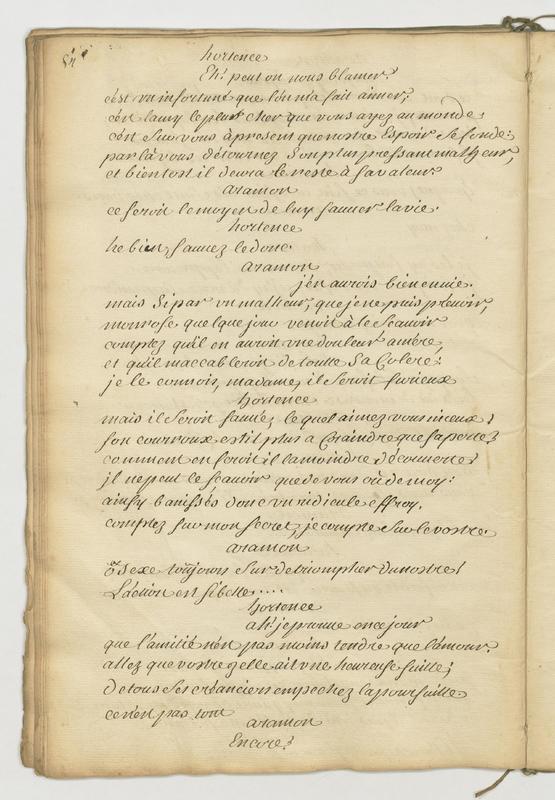 hortence
Eh! peut on nous blamer?
c'est vn infortuné que l'on m'a fait aimer;
c'en l'amy le plus cher que vous ayez au monde;
c'en sur vous àpresent que nostre Espoir se fonde:
par là vous détournez son plus pressant malheur,
et bientost il devra le reste à sa valeur.
aramon
ce seroit le moyen de luy sauuer la vie.
hortence
he bien, sauuez le donc.
aramon
j'en aurois bien enuie.
mais si par vn malheur, que je ne puis préuoir,
monrose quelque jour venoit à le scauoir
comptez qu'il en auroit vne douleur amére,
et qu'il m'accableroit de toutte sa Colere:
je le connois, madame, il seroit furieux
hortence
mais il seroit sauué, le quel aimez vous mieux?
son courroux est il plus a Craindre que sa perte?
comment en feroit il la moindre découuerte?
jl ne peut le scauoir que de vous où de moy:
ainsy banissés donc vn ridicule effroy.
comptez sur mon secret, je compte sur le vostre.
aramon
ô sexe toûjours sur de triompher du nostre!
L'action est si belle....
hortence
ah! je prouue en ce jour
que l'amitié n'en pas moins tendre que l'amour.
allez que vostre zelle ait vne heureuse suitte;
de tous ses créanciers empechez la poursuitte
ce n'en pas tout
aramon
Encore?